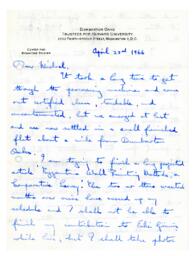 DUMBARTON OAKS
TRUSTEES FOR HARVARD UNIVERSITY
1703 THIRTY-SECOND STREET, WASHINGTON 7, D.C.
CENTER FOR
BYZANTINE STUDIES
April 22nd 1966
Dear Michael,
It took a long time to get
through the processing machine and come
out certified clean, trackable, and
uncontaminated, but we emerged at last
and are now settled in a small furnished
flat about a mile from Dumbarton
Oaks.
I am trying to finish a long projected
article "Egyptian Wall Painting Methods, a
Comparative Survey". One two or three wanted
matters now mine have messed up my
schedule and I shall not be able to
finish my contribution to
while here, but I shall take photos